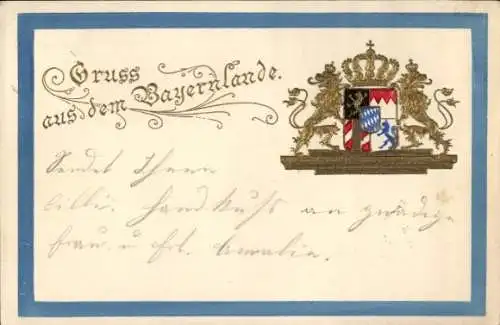 Gruss
aus dem Bayernlande.
Sendet Ihnen
Handkuss an gnädige
Frau u. Frl. Amalie.